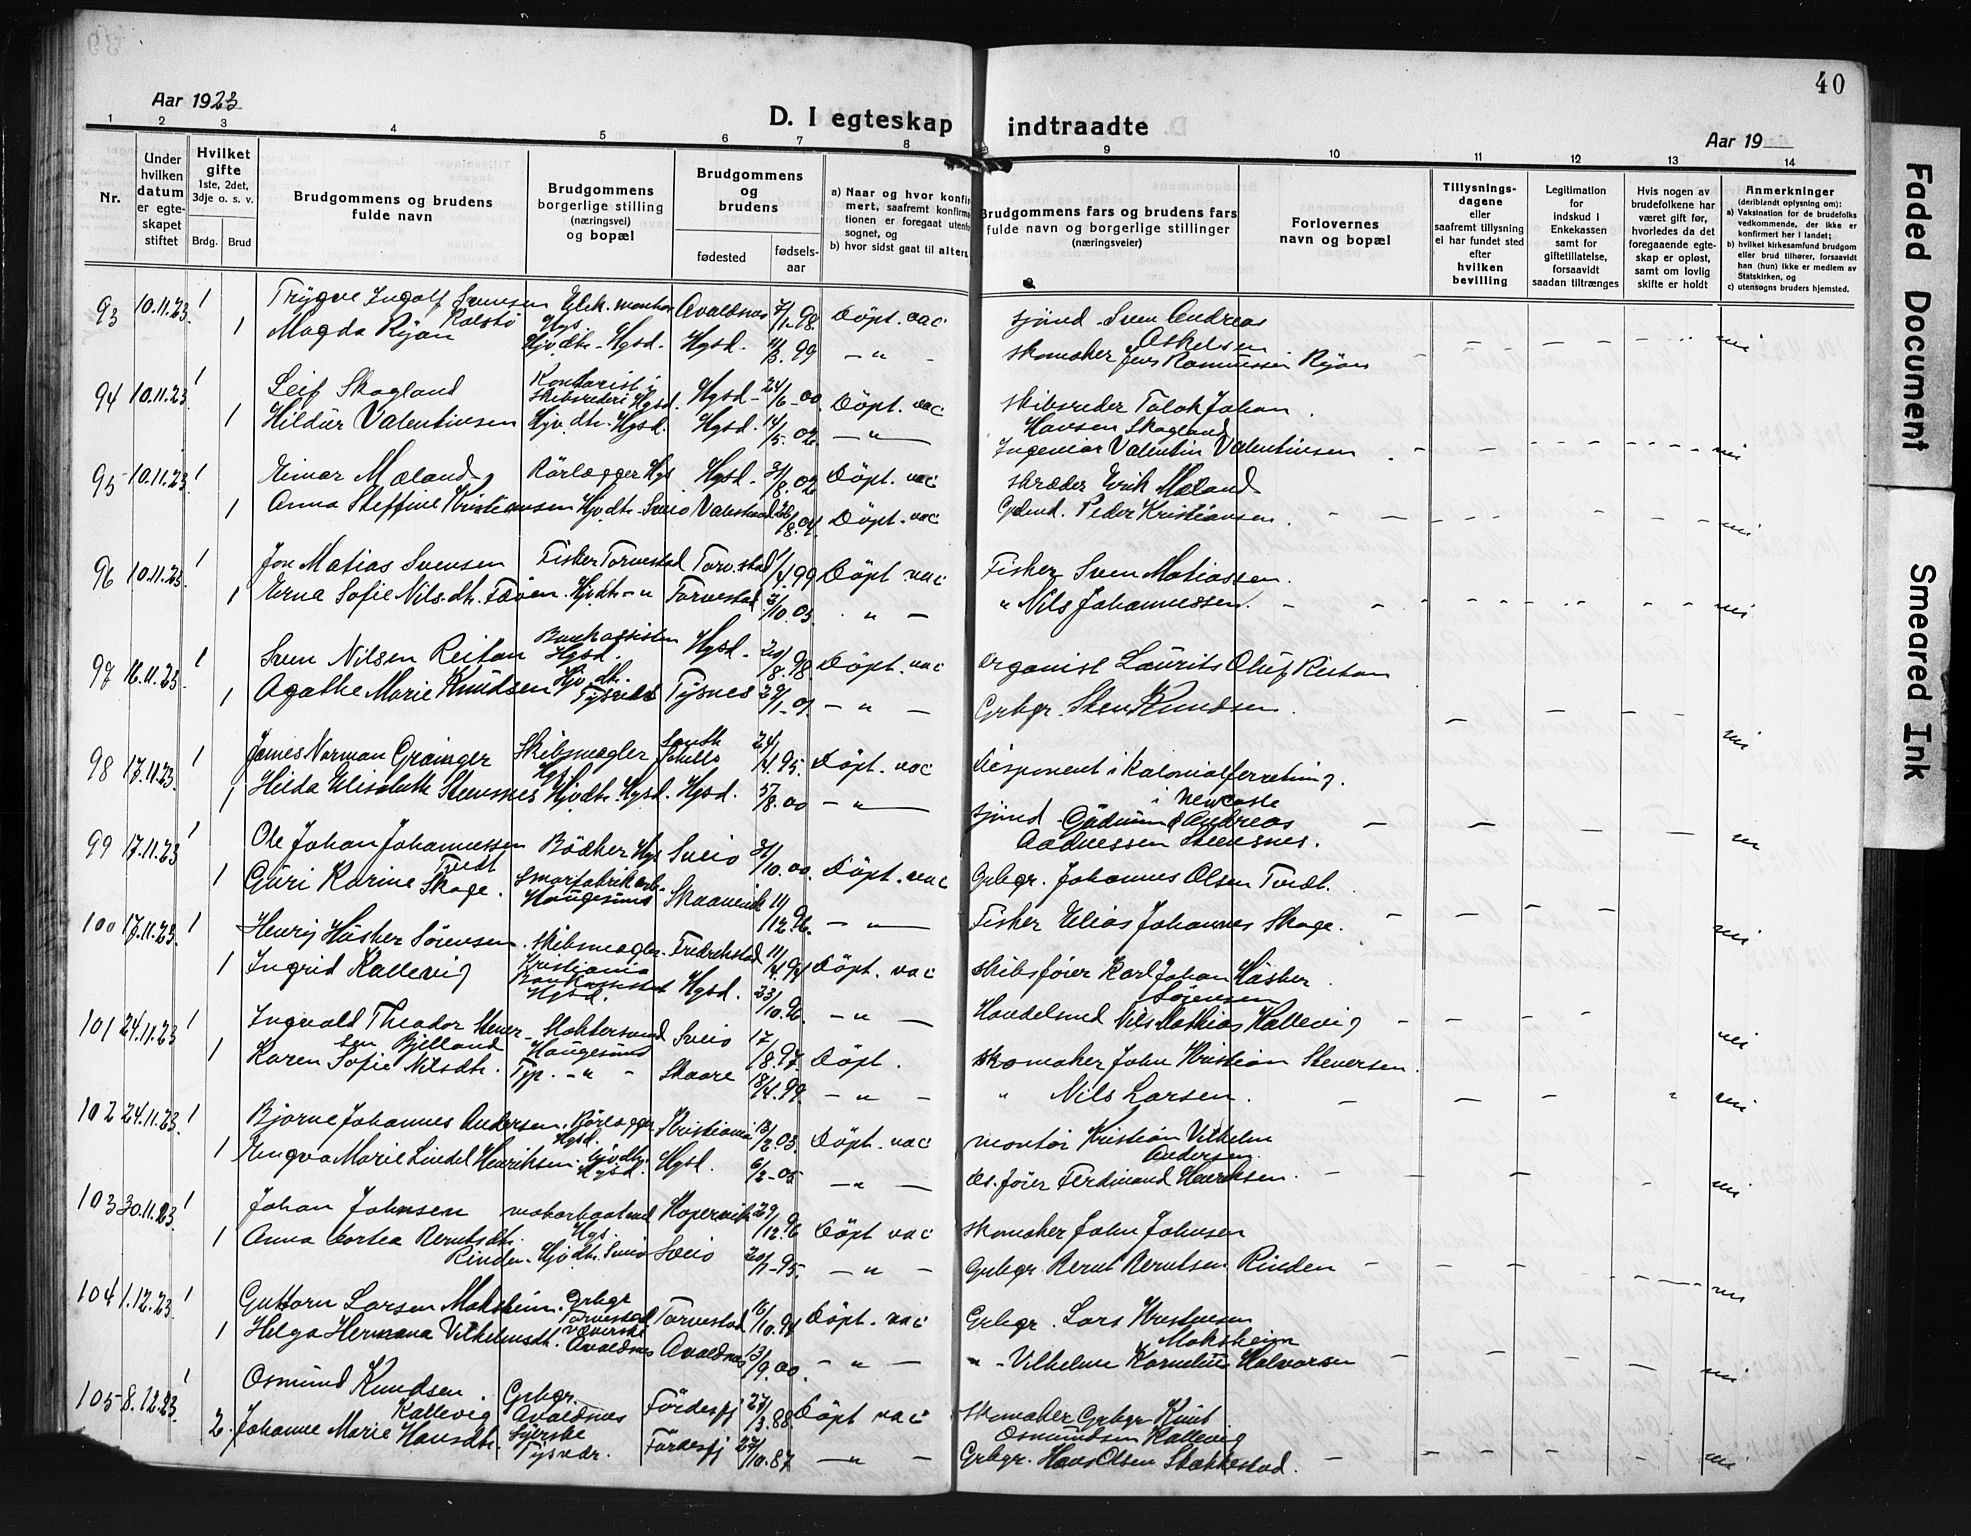 40
Aar 1923
D. I egteskap indtraadte
Aar 19
1 2 3 4 5 6 7 8 9 10 11 12 13 14
Nr.
Under hvilken datum er egteskapet stiftet
Hvilket gifte
1ste, 2det, 3dje o. s. v.
Brdg. Brud
Brudgommens og brudens fulde navn
Brudgommens borgerlige stilling (næringsvei) og bopæl
Brudgommens og brudens
fødested
fødsels-aar
a) Naar og hvor konfirmert, saafremt konfirmationen er foregaat utenfor sognet, og
b) hvor sidst gaat til alters
Brudgommens fars og brudens fars fulde navn og borgerlige stillinger (næringsveier)
Forlovernes navn og bopæl
Tillysnings-dagene eller saafremt tillysning ei har fundet sted efter hvilken bevilling
Legitimation for indskud i Enkekassen samt for giftetillatelse, forsaavidt saadan tiltrænges
Hvis nogen av brudefolkene har været gift før, hvorledes da det foregaaende egteskap er opløst, samt om lovlig skifte er holdt
Anmerkninger
(deriblandt oplysning om):
a) Vaksination for de brudefolks vedkommende, der ikke er konfirmert her i landet;
b) hvilket kirkesamfund brudgom eller brud tilhører, forsaavidt han (hun) ikke er medlem av Statskirken, og
c) utensogns bruders hjemsted.
93 10.11.23. 1 Trygve Ingolf Svensen Kolstø Elek. montør Hgs. Avaldsnes 7/1-98 Døpt. vac Sjømd. Sven Andreas Askelsen
1 Magda Ryan Hjv. dtr. Hgsd. Hgsd. 99 — " — Skomaker Jens Rasmussen Ryan
94 10.11.23 1 Leif Skogland Kontorist i skibsrederi Hgsd. Hgsd. 24/6-00 Døpt. vac Skibsreder Tolak Johan Hansen Skogland
1 Hildur Valentinsen Hjv. dtr. Hgsd. Hgsd. 14/5-02 — " — Ingeniør Valentin Valentinsen
95 10.11.23 1 Einar Mæland Rørlægger Hgs Hgsd. 31/8.02 Døpt. vac Skræder Erik Mæland
1 Anna Steffine Kristiansen Hjv. dtr. Sveio Valestrand 8.04. Døpt. vac Grdmd. Peder Kristiansen.
96 10.11.23 1 Jon Matias Svensen Fisker Torvestad Torv.stad 4.99 Døpt vac Fisker Sven Matiassen.
1 Erna Sofie Nils.dtr. Føven Hjv dtr - " Torvestad 3/10.03. " — " Nils Johannessen.
97 16.11.23 1 Sven Nilsen Reitan Bankassisten Hgsd. Hgsd. 20/8.98. Døpt. vac Organist Laurits Oluf Reitan
1 Agathe Marie Knudsen Hjv. dtr. Tysnes Tysnes 29/1-01. — " — Grbgr. Sten Knudsen.
98 17.11.23 1 James Norman Grainger Skibsmægler Hgs. South Schills 24/4.95. Døpt. vac Disponent i Kolonialforretning i Newcastle
1 Hilda Elisabeth Stensnes Hjv dtr. Hgsd. Hgsd. 8.00 — " — Sjømd Andreas Aadnessen Stensnes.
99 17.11.23 1 Ole Johan Johannessen Tvedt Bødker Hgs Sveio 31/10.00. Døpt. vac Grbgr. Johannes Olsen Tvedt.
1 Guri Karine Skage. Smørfabrikarb. Haugesund Skaanevik 11/12.96. — " — Fisker Elias Johannes Skage.
100 17.11.23 1 Henrij Häsker Sørensen. Skibsmægler Kristiania Fredrekstad 11/4.94 Døpt. vac Skibsfører Karl Johan Häsker Sørensen
1 Ingrid Kallevig Bankassistent Hgsd. Hgsd. 23/10.96. — " — Handelsmd Nils Mathias Kallevig
101 24.11.23 1 Ingvald Theodor Stener-sen Bjelland Slaktersvend Haugesund Sveio 17/8.97. Døpt. Skomaker John Kristian Stenersen.
1 Karen Sofie Nilsdtr. Typ. - " - Skaare 18/4.99. — " — " Nils Larsen.
102 24.11.23 1 Bjarne Johannes Andersen. Rørlægger Hgsd. Kristiania 13/2.03. Døpt. vac Montør Kristian Vilhelm Andersen.
1 Yngva Marie Lindel Henriksen. Hjv. dtr. Hgsd. Hgsd. 6/2-05 — " — ds. fører Ferdinand Henriksen.
103 30.11.23 1 Johan Johnsen Motorbaatmd Hgs. Kopervik 29/12.96 Døpt vac Skomaker John Johnsen
1 Anna Dortea Berntsdtr. Rinden. Hjv dtr. Sveio Sveio 20/1-95. — " — Grbgr. Bernt Berntsen Rinden
104 1.12.23 1 Guttorm Larsen Maksheim. Grbgr Torvestad Torvestad 16/10.94 Døpt. vac Grbgr. Lars Kristensen Maksheim
1 Helga Hermana Vilhelmsdtr. Væverske Avaldsnes Avaldsnes 13/9.00. — " — " - Vilhelm Kornelius Halvorsen
105 8.12.23. 1 Osmund Knudsen Kallevig Grbgr. Avaldsnes Førdesfj 27/3.88. Døpt vac Skomaker Grbgr Knut Osmundsen Kallevig
2. Johanne Marie Hansdtr. Syerske Tysvær. Førdesfj 27/10.87 — " — Grbgr. Hans Olsen Stakkestad.
Faded Document
Smeared Ink